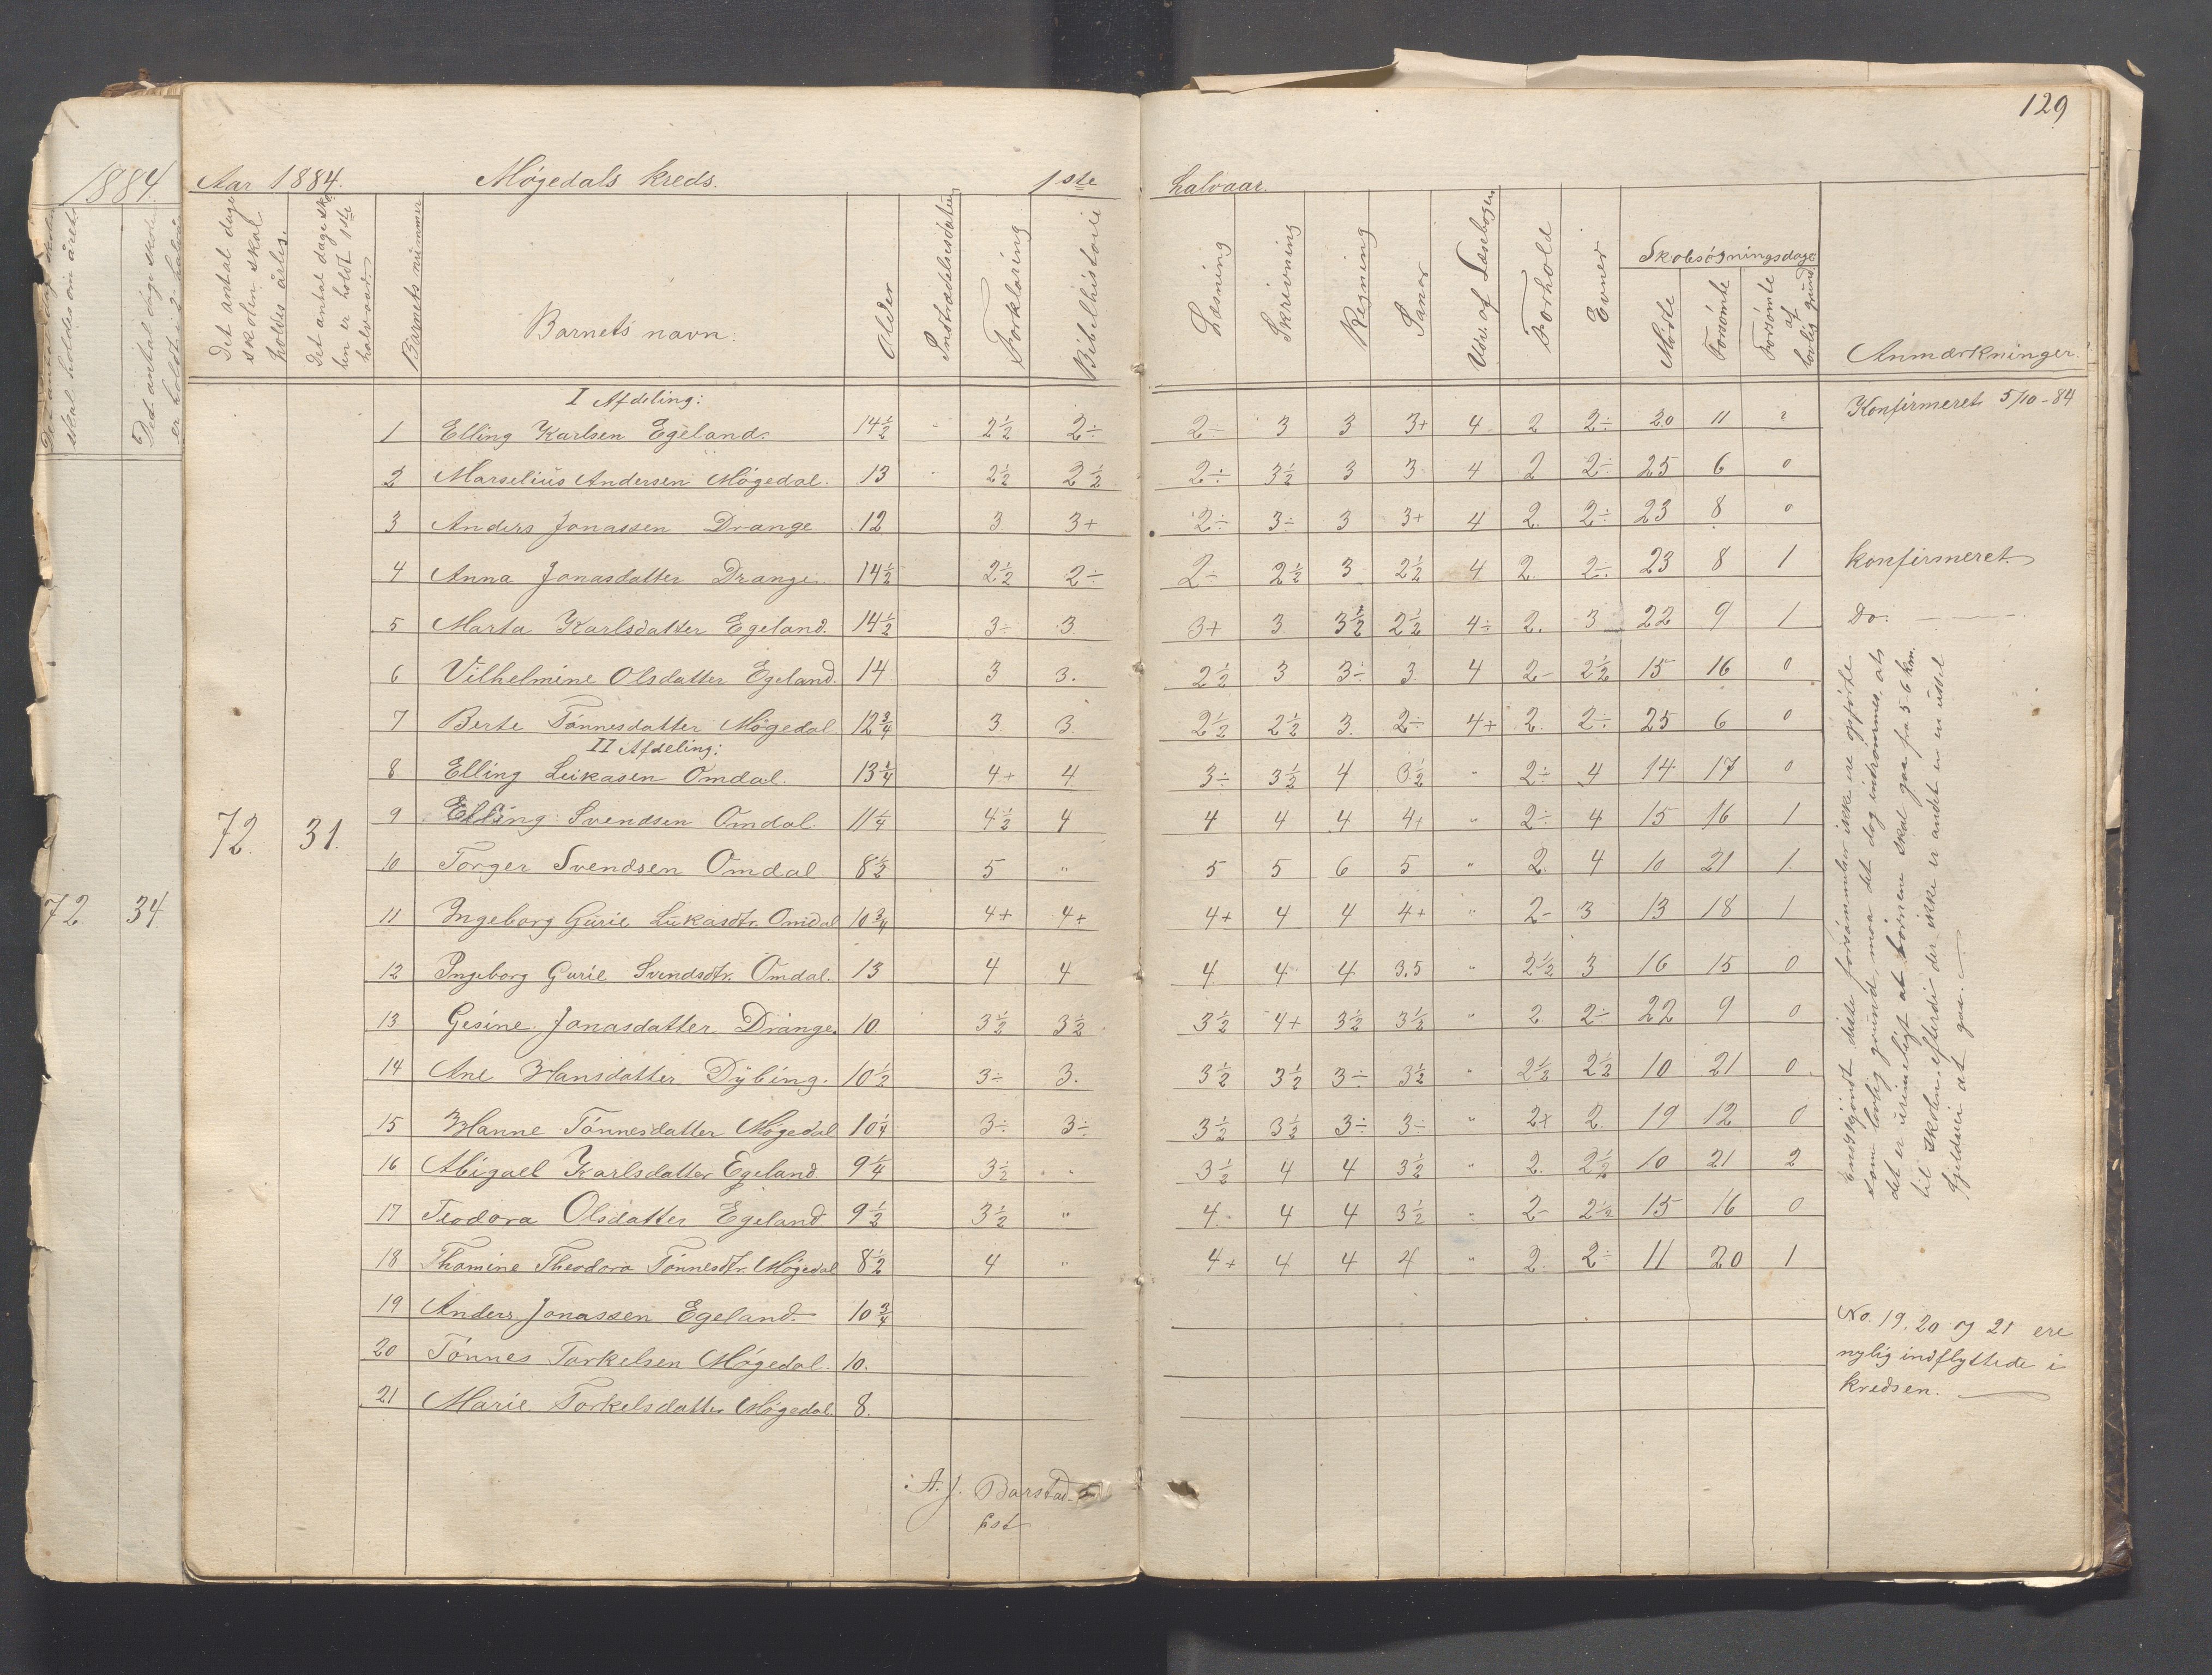 129
1884.
Det antal dage skolen
skal holdes om året.
Det antal dage skolen
er holdt i 2. halvår
72 34.
Aar 1884. Møgedals kreds. 1ste halvaar.
Det antal dage skolen skal holdes årlig.
Det antal dage skolen er holdt 1ste halvaar
Barnets nummer
Barnets navn.
Alder
Indtrædelsesdatum
Forklaring
Bibelhistorie
Læsning
Skrivning
Regning
Sang
Udv. af Læsebogen
Forhold
Evner
Skolesøgningsdage
Mødte
Forsömte
Forsömte af lovlig grund
Anmærkninger.
I Afdeling:
1 Elling Karlsen Egeland. 14½ 2½ 2÷ 2- 3 3 3+ 4 2 2÷ 20 11 2 Konfirmeret 5/10-84
2 Marselius Andersen Møgedal. 13 2½ 2½ 2÷ 3½ 3 3 4 2 2÷ 25 6 0
3 Anders Jonassen Drange 12 3 3+ 2÷ 3÷ 3 3+ 4 2. 2÷ 23 8 0
4 Anna Jonasdatter Drange 14½ 2½ 2÷ 2- 2½ 3 2½ 4 2. 2÷ 23 8 1 konfirmeret.
5 Marta Karlsdatter Egeland. 14½ 3÷ 3 3+ 3 3½ 2½ 4÷ 2. 3 22 9 1 Do.
6 Vilhelmine Olsdatter Egeland. 14 3 3. 2½ 3 3÷ 3 4 2- 2½ 15 16 0
7 Berte Tönnesdatter Møgedal 12¾ 3 3 2½ 2½ 3. 2÷ 4+ 2. 2÷ 25 6 0
II Afdeling:
8 Elling Lukasen Omdal. 13¼ 4+ 4 3÷ 3½ 4 3½ " 2÷ 4 14 17 0
72. 31. 9 Elling Svendsen Omdal. 11¼ 4½ 4 4 4 4 4+ " 2÷ 4 15 16 1
10 Torger Svendsen Omdal 8½ 5 " 5 5 6 5 " 2. 4 10 21 1.
11 Ingeborg Gurie Lukasdtr. Omdal 10¾ 4+ 4+ 4+ 4 4 4+ " 2- 3 13 18 1
12 Ingeborg Gurie Svendsdtr. Omdal. 13 4 4 4 4 4 3.5 " 2½ 3 16 15 0
13 Gesine Jonasdatter Drange. 10 3½ 3½ 3½ 4+ 3½ 3½ " 2. 2÷ 22 9 0
14 Ane Hansdatter Dybing. 10½ 3÷ 3. 3½ 3½ 3÷ 3½ " 2½ 2½ 10 21 0
15 Hanne Tönnesdatter Møgedal 10¼ 3÷ 3÷ 3½ 3½ 3÷ 3÷ " 2+ 2. 19 12 0
16 Abigael Karlsdatter Egeland 9¼ 3½ " 3½ 4 4 3½ " 2. 2½ 10 21 2
17 Teodora Olsdatter Egeland 9½ 3½ " 4. 4 4 3½ " 2- 2½ 15 16 0
18 Thomine Theodora Tönnesdtr. Møgedal 8½ 4 " 4+ 4 4 4 " 2. 2÷ 11 20 1
19 Anders Jonassen Egeland. 10¾
20 Tönnes Torkelsen Møgedal. 10.
21 Marie Torkelsdatter Møgedal. 8.
Endskjöndt disse forsömmelser ikke ere opförte
som lovlig grund, maa det dog indrömmes, at
det er urimeligt at börnene skal gaa fra 5-6 km.
til skolen, efterdi der ikke er andet en en ussel
fjeldvei at gaa.
No. 19, 20 og 21 ere
nylig indflyttede i
kredsen.
A. J. Barstad